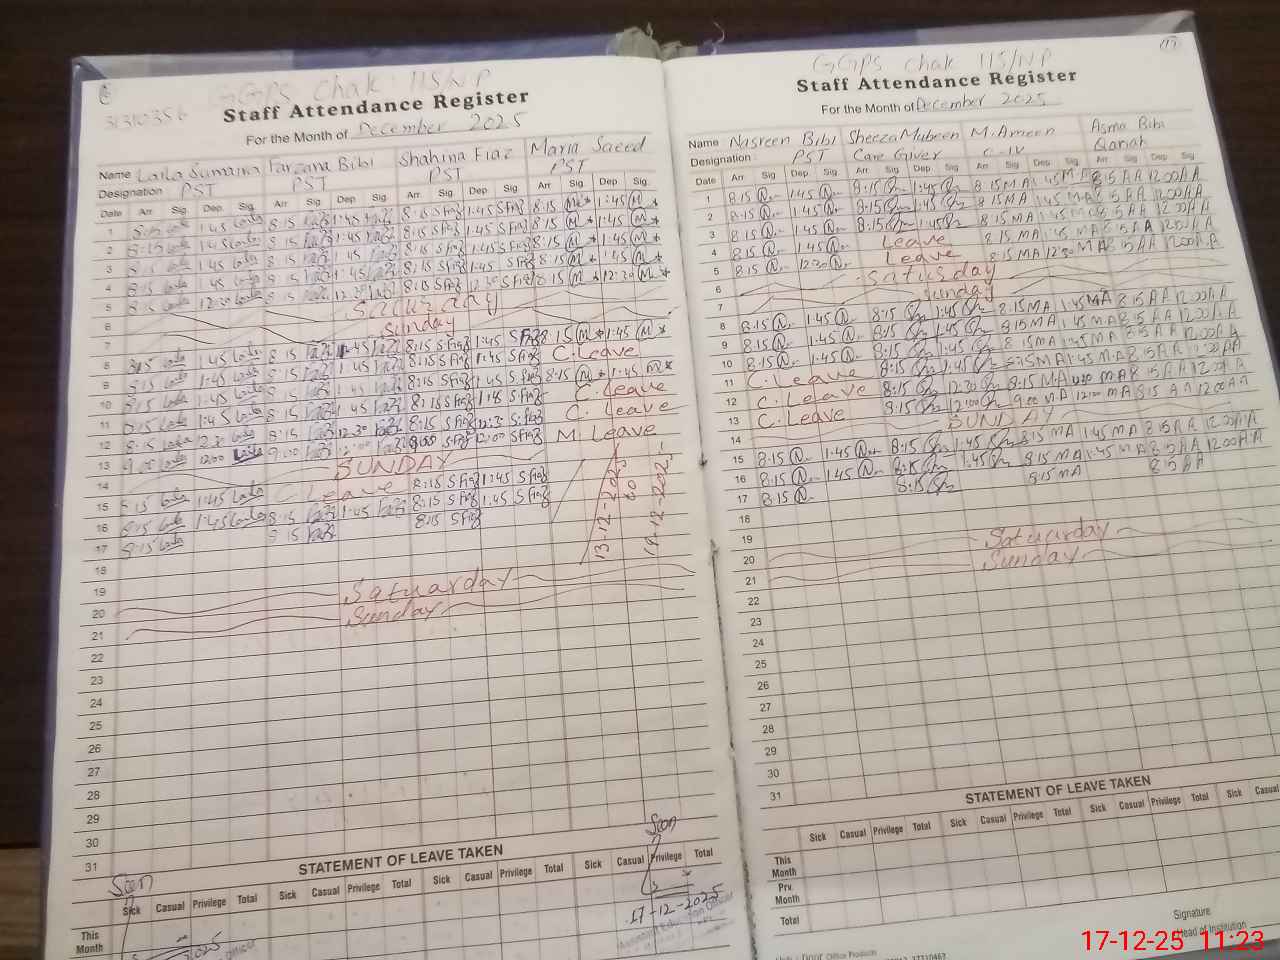 GGPS Chak 115/NP
31310356
Staff Attendance Register
For the Month of December 2025
Name Laila Sumaira Farzana Bibi Shahina Fiaz Maria Saeed
Designation PST PST PST PST
Date Arr Sig. Dep. Sig. Arr Sig. Dep Sig. Arr Sig. Dep. Sig. Arr Sig. Dep Sig.
1 8:15 1:45 8:15 1:45 8:15 S Fiaz 1:45 S Fiaz 8:15 M 1:45 M
2 8:15 1:45 8:15 1:45 8:15 S Fiaz 1:45 S Fiaz 8:15 M 1:45 M
3 8:15 1:45 8:15 1:45 8:15 S Fiaz 1:45 S Fiaz 8:15 M 1:45 M
4 8:15 1:45 8:15 1:45 8:15 S Fiaz 1:45 S Fiaz 8:15 M 1:45 M
5 8:15 12:30 8:15 12:30 8:15 S Fiaz 12:30 S Fiaz 8:15 M 12:30 M
6 Saturday
7 Sunday
8 8:15 1:45 8:15 1:45 8:15 S Fiaz 1:45 S Fiaz 8:15 M 1:45 M
9 8:15 1:45 8:15 1:45 8:15 S Fiaz 1:45 S Fiaz C. Leave
10 8:15 1:45 8:15 1:45 8:15 S Fiaz 1:45 S Fiaz 8:15 M 1:45 M
11 8:15 1:45 8:15 1:45 8:15 S Fiaz 1:45 S Fiaz C. Leave
12 8:15 12:30 8:15 12:30 8:15 S Fiaz 12:30 S Fiaz C. Leave
13 9:00 12:00 9:00 12:00 9:00 S Fiaz 12:00 S Fiaz M. Leave
14 SUNDAY
15 8:15 1:45 C Leave 8:15 S Fiaz 1:45 S Fiaz
16 8:15 1:45 8:15 1:45 8:15 S Fiaz 1:45 S Fiaz
17 8:15 8:15 8:15 S Fiaz
13-12-2025
18
19
20 Saturday
21 Sunday
22
23
24
25
26
27
28
29
30
31
STATEMENT OF LEAVE TAKEN
Seen
Seen
Sick Casual Privilege Total Sick Casual Privilege Total Sick Casual Privilege Total Sick Casual Privilege Total
This Month
17-12-2025
Assistant Education Officer
17
GGPS Chak 115/NP
Staff Attendance Register
For the Month of December 2025
Name Nasreen Bibi Sheeza Mubeen M. Ameen Asma Bibi
Designation PST Care Giver C-IV Qariah
Date Arr Sig. Dep Sig. Arr Sig. Dep Sig. Arr Sig. Dep Sig. Arr Sig. Dep Sig.
1 8:15 N 1:45 N 8:15 1:45 8:15 MA 1:45 MA 8:15 AA 12:00 AA
2 8:15 N 1:45 N 8:15 1:45 8:15 MA 1:45 MA 8:15 AA 12:00 AA
3 8:15 N 1:45 N 8:15 1:45 8:15 MA 1:45 MA 8:15 AA 12:00 AA
4 8:15 N 1:45 N Leave 8:15 MA 1:45 MA 8:15 AA 12:00 AA
5 8:15 N 12:30 N Leave 8:15 MA 12:30 MA 8:15 AA 12:00 AA
6 Saturday
7 Sunday
8 8:15 N 1:45 N 8:15 1:45 8:15 MA 1:45 MA 8:15 AA 12:00 AA
9 8:15 N 1:45 N 8:15 1:45 8:15 MA 1:45 MA 8:15 AA 12:00 AA
10 8:15 N 1:45 N 8:15 1:45 8:15 MA 1:45 MA 8:15 AA 12:00 AA
11 C. Leave 8:15 1:45 8:15 MA 1:45 MA 8:15 AA 12:00 AA
12 C. Leave 8:15 12:30 8:15 MA MA 8:15 AA 12:00 AA
13 C. Leave 8:15 12:00 9:00 MA 12:00 MA 8:15 AA 12:00 AA
14 SUNDAY
15 8:15 N 1:45 N 8:15 1:45 8:15 MA 1:45 MA 8:15 AA 12:00 AA
16 8:15 N 1:45 N 8:15 1:45 8:15 MA 1:45 MA 8:15 AA 12:00 AA
17 8:15 N 8:15 8:15 MA 8:15 AA
18
19
20 Saturday
21 Sunday
22
23
24
25
26
27
28
29
30
31
STATEMENT OF LEAVE TAKEN
Sick Casual Privilege Total Sick Casual Privilege Total Sick Casual Privilege Total Sick Casual
This Month
Prv. Month
Total
Signature
Head of Institution
Office Products
17-12-25 11:23